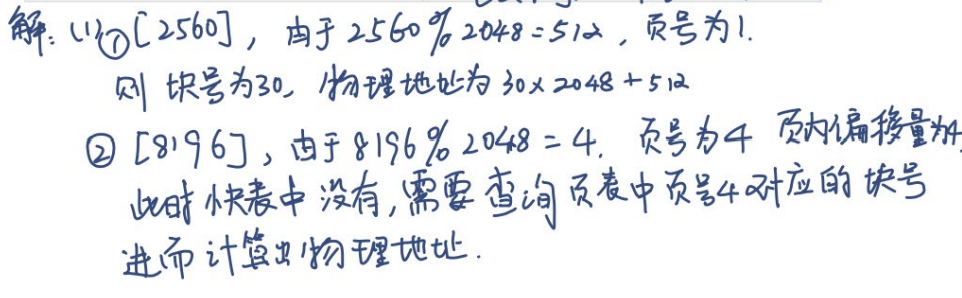 解: (1)① [2560], 由于2560%2048=512, 页号为1.
则 块号为30, 物理地址为 30×2048+512
② [8196], 由于8196%2048=4. 页号为4 页内偏移量为4
此时快表中没有,需要查询页表中页号4对应的块号
进而计算出物理地址.